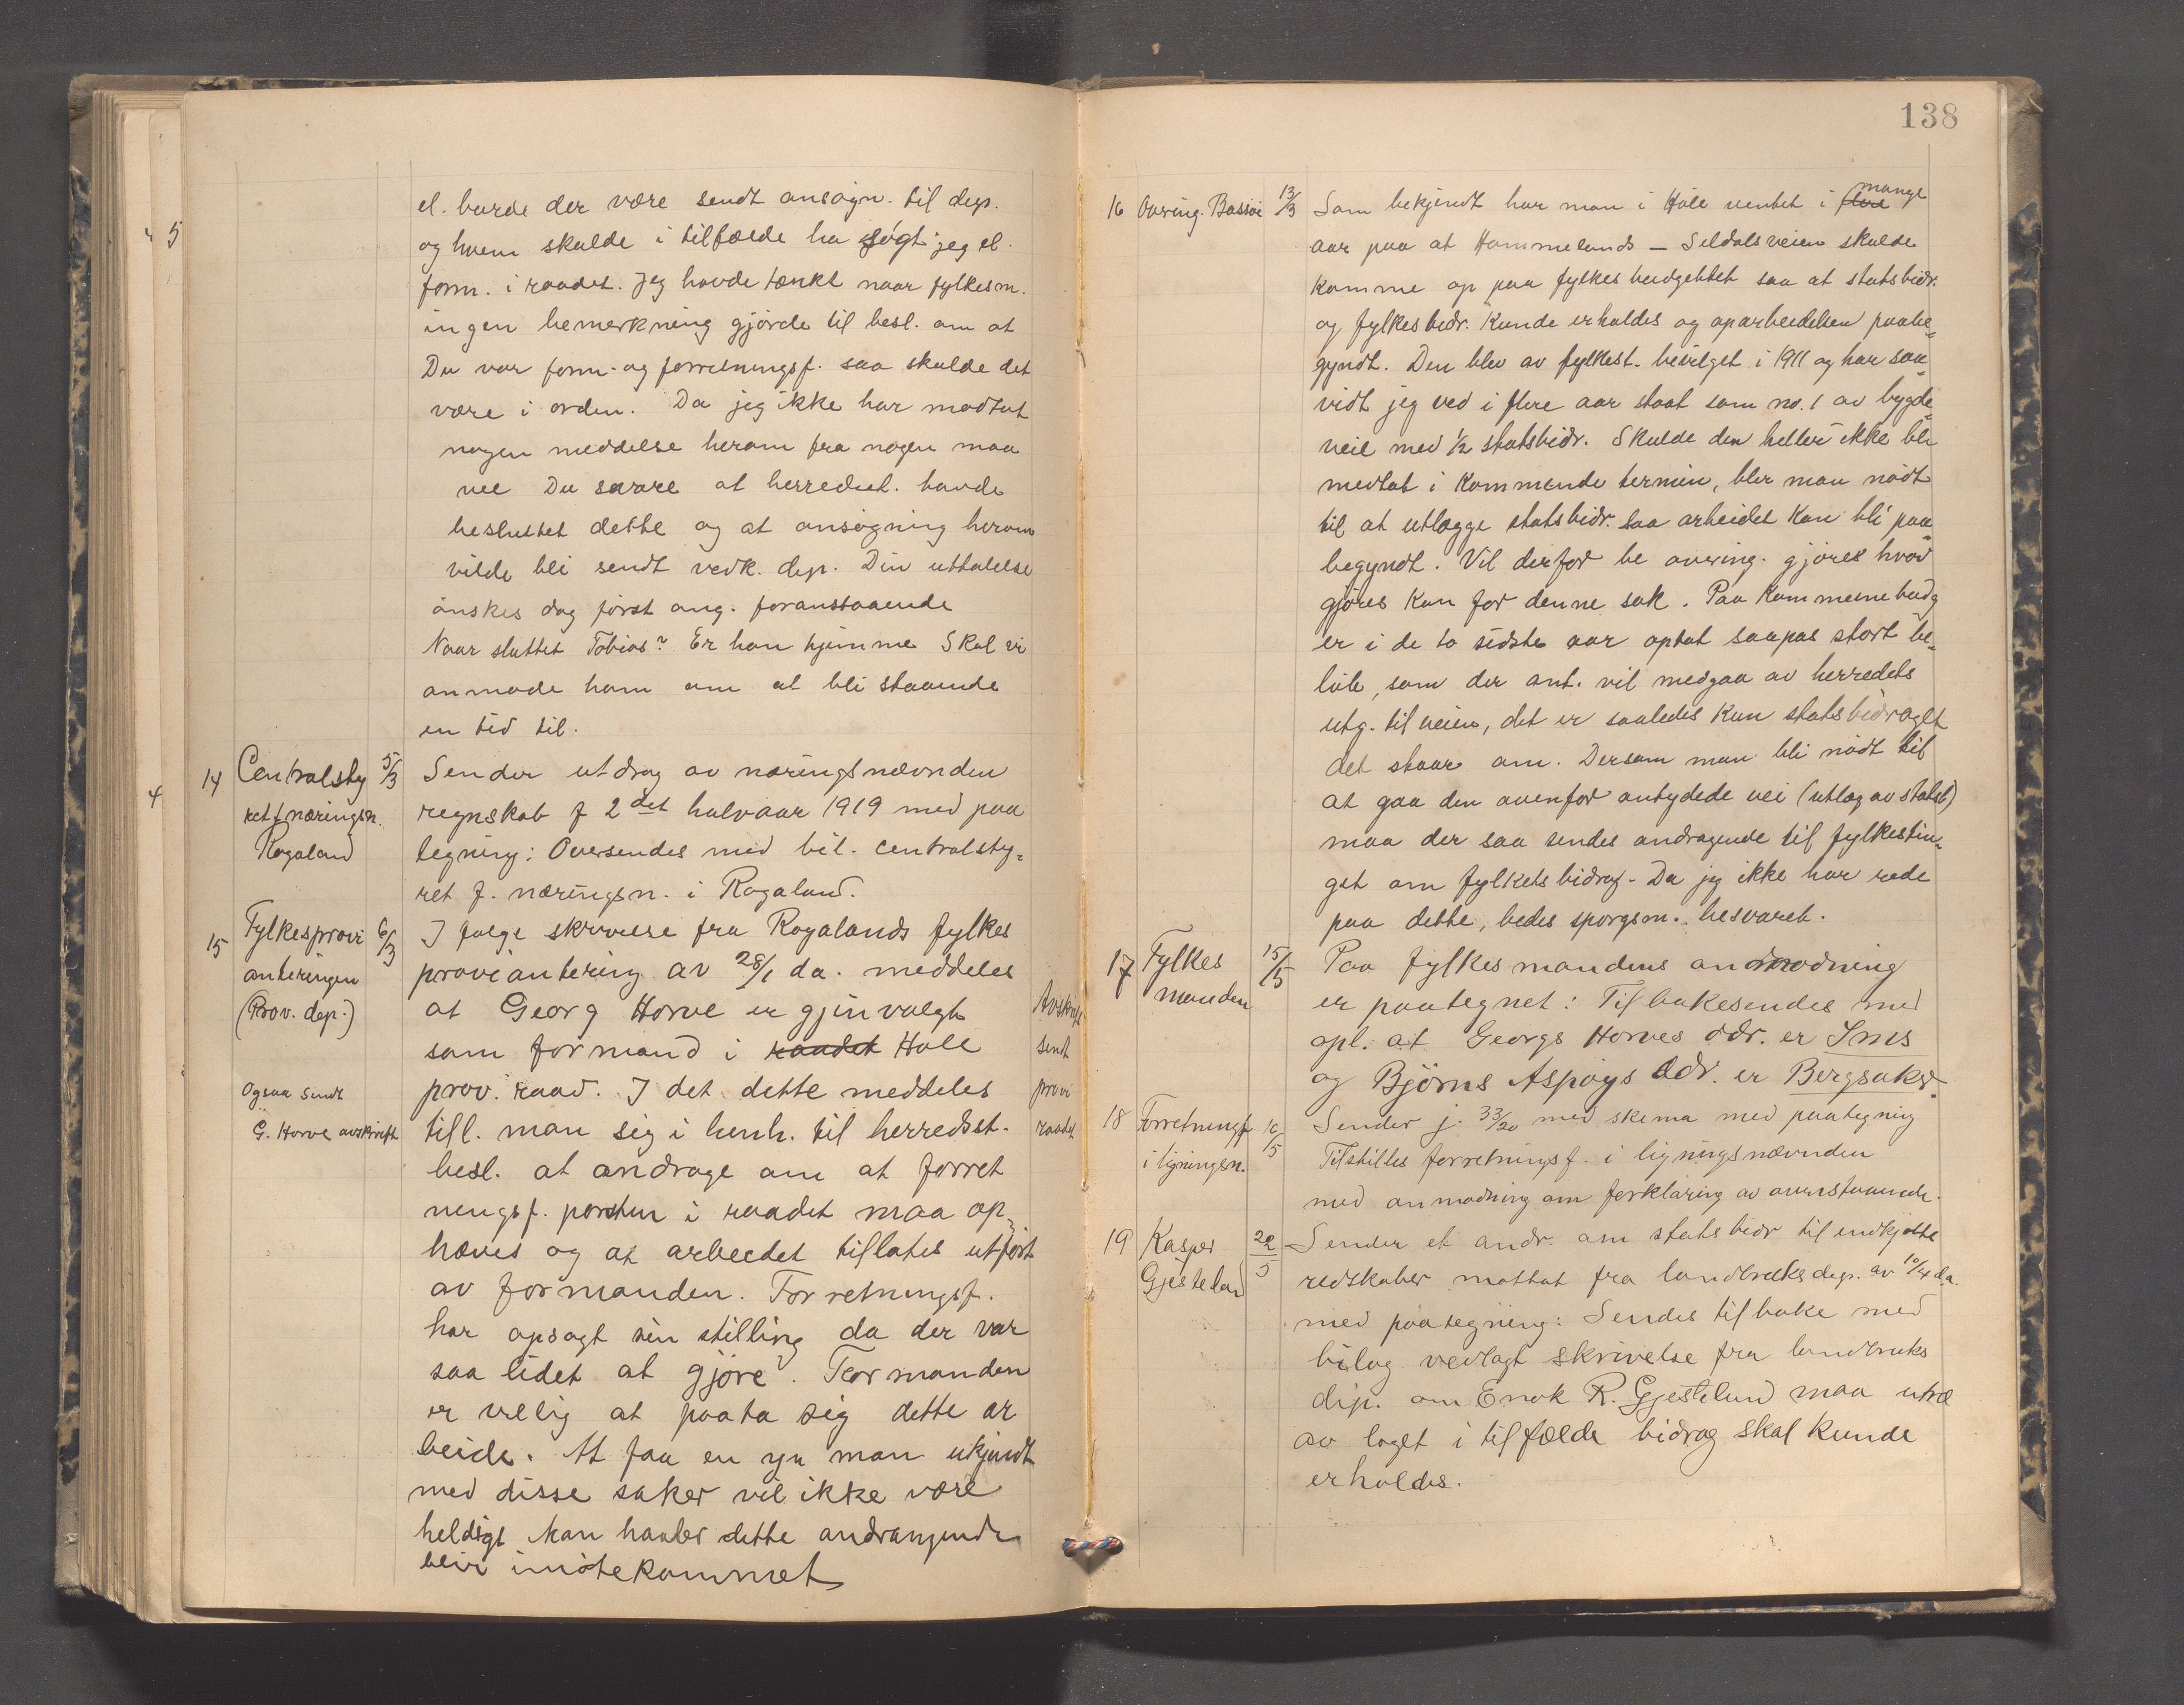 el. burde der være sendt ansøgn. til dep.
og hvem skulde i tilfælde ha søgt jeg el.
form. i raadet. Jeg havde tænkt naar fylkesm.
ingen bemerkning gjorde til besl. om at
Du var form- og forretningsf. saa skulde det
være i orden. Da jeg ikke har modtat
nogen meddelse herom fra nogen maa
vel Du svare at herredsst. havde
besluttet dette og at ansøgning herom
vilde bli sendt vedk. dep. Din uttalelse
ønskes dog først ang. foranstaaende
Naar sluttet Tobias? Er han hjemme Skal vi
anmode ham om at bli staaende
en tid til.
14 Centralsty 5/3 Sender utdrag av næringsnævnden
ret f næringsn. regnskab f 2det halvaar 1919 med paa
Rogaland tegning: Oversendes med bil. centralsty=
ret f. næringsn. i Rogaland.
15 Fylkesprovi 6/3 I følge skrivelse fra Rogalands fylkes
anteringen proviantering av 28/1 da. meddeles
(Prov. dep.) at Georg Horve er gjenvalgt Avskrift
som formand i raadet Hole sendt
Ogsaa sendt prov. raad. I det dette meddeles provi
G. Horve avskrift till. man sig i henh. til herredsst. raadet
besl. at andrage om at forret
ningsf. posten i raadet maa op=
hæves og at arbeidet tillates utført
av formanden. Forretningsf.
har opsagt sin stilling da der var
saa lidet at gjøre. Formanden
er villig at paata sig dette ar
beide. At faa en ny man ukjendt
med disse saker vil ikke være
heldigt Man haaber dette andragende
blir imøtekommet
138
16 Overing. Bassøe 13/3 Som bekjendt har man i Høle ventet i flere mange
aar paa at Hommelands - Seldalsveien skulde
komme op paa fylkesbudgettet saa at statsbidr.
og fylkesbidr. kunde erholdes og oparbeidelsen paabe=
gyndt. Den blev av fylkest. bevilget i 1911 og har saa=
vidt jeg ved i flere aar staat som no. 1 av bygde=
veie med 1/2 statsbidr. Skulde den heller ikke bli
medtat i kommende termin, blir man nødt
til at utlægge statsbidr. saa arbeidet kan bli paa=
begyndt. Vil derfor be overing. gjøres hvad
gjøres kan for denne sak. Paa kommunebudg
er i de to sidste aar optat saapas stort be=
løb, som der ant. vil medgaa av herredets
utg. til veien, det er saaledes kun statsbidraget
det staar om. Dersom man bli nødt til
at gaa den ovenfor antydede vei (utlæg av statsb)
maa der saa sendes andragende til fylkestin=
get om fylkets bidrag. Da jeg ikke har rede
paa dette, bedes spørgsm. besvaret.
17 Fylkes 15/5 Paa fylkesmandens anmodning
manden er paategnet: Tilbakesendes med
opl. at Georgs Horves adr. er Ims
og Bjørns Aspøys Adr. er Bergsaker.
18 Forretningsf 16/5 Sender j. 33/20 med skema med paategning
i ligningsn. Tilstilles forretningsf. i ligningsnævnden
med anmodning om forklaring av ovenstaaende.
19 Kasper 22/5 Sender et andr. om statsbidr til indkjøbte
Gjesteland redskaber mottat fra landbruksdep. av 10/4 d.a.
med paategning: Sendes tilbake med
bilag vedlagt skrivelse fra landbruks
dep. om Enok R. Gjesteland maa utræ
av laget i tilfælde bidrag skal kunde
erholdes.
5
4